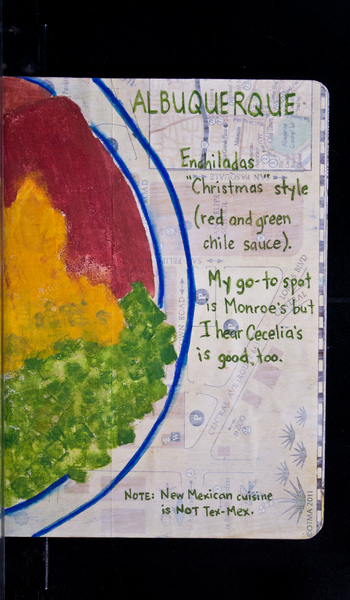 ALBUQUERQUE
Enchiladas
"Christmas" style
(red and green
chile sauce).
My go-to spot
is Monroe's but
I hear Cecelia's
is good, too.
NOTE: New Mexican cuisine
is NOT Tex-Mex.
©OTMA 2011
SAN PASQUALE
SAN FELI
CENTRAL AVE
P
P